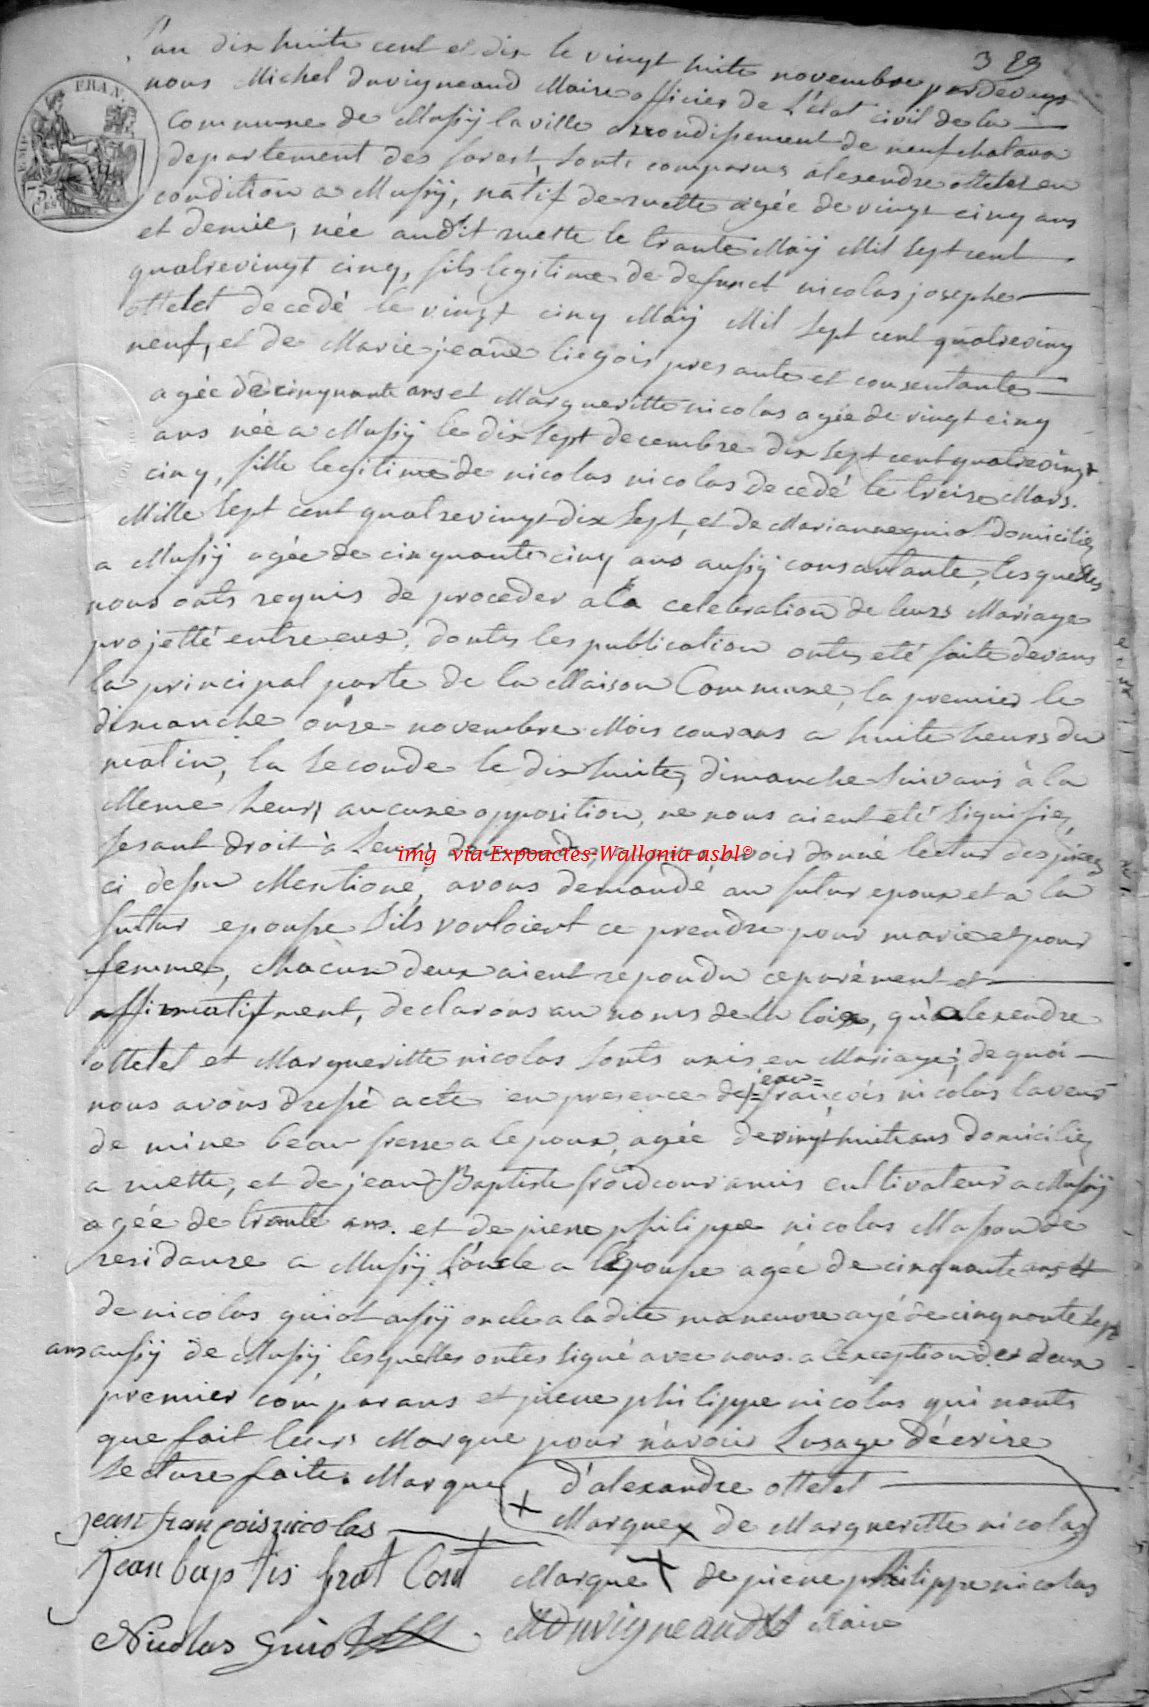 389
L'an dix huite cent et dix le vingt huite novembre pardevans
nous Michel Duvigneaud Maire officier de L'état civil de la
Commune de Mussÿ la ville arrondissement de neufchataux
departement des forest, sonts comparus alexendre ottelet en
condition a Mussÿ, natif de ruette agée de vingt cinq ans
et demie, née audit ruette le trante Maÿ Mil sept cent
quatrevingt cinq, fils legitime de defunct nicolas josephe
ottelet decedé le vingt cinq Maÿ Mil sept cent quatreving
neuf, et de Marie jeanne liegois presante et consentante
agée de cinquante ans et Margueritte nicolas agée de vingt cinq
ans née a Mussÿ le dix sept decembre dix sept cent quatrevingt
cinq, fille legitime de nicolas nicolas decedé le treize Mars
Mille sept cent quatrevingt dix sept, et de Marianne guiot domiciliez
a Mussÿ agée de cinquante cinq ans aussÿ consantante, lesquelles
nous onts requis de proceder a la celebration de leurs Mariage
projetté entre eux, donts les publication onts eté faite devans
la principal porte de la Maison Commune, la premier le
dimanche onze novembre Mois courans a huite heurs du
matin, la seconde le dix huite, dimanche suivans à la
Meme heurs aucune opposition, ne nous aient eté signifiez,
fesant droit à leurs demande, apprez avoir donné lectur des pieces
ci dessu Mentioné, avons demandé au futur epoux et a la
futur epousse s'ils vouloient ce prendre pour marie et pour
femme, chacun deux aient repondu ceparément et
affirmatifment, declarons au noms de la loix, qu'alexendre
ottelet et Margueritte nicolas sonts unis en Mariage; de quoi
nous avons dressé acte en presence de =jean= françois nicolas laveur
de mine beau frere a lepoux, agée de vingt huite ans domiciliez
a ruette, et de jean Baptiste froidcour amis cultivateur a Mussÿ
agée de trante ans. et de piere philippe nicolas Masson de
residance a Mussÿ l'oncle a l'Epousse agée de cinquante ans et
de nicolas guiot aussÿ oncle a la dite maneuvre agé de cinquante sept
ans aussÿ de Mussÿ lesquelles ontes signé avec nous a lexception des deux
premier comparans et piere philippe nicolas qui nonts
que fait leurs Marque pour n'avoir l'usage d'écrire
lecture faite. Marque d'alexandre ottelet
jean françois nicolas Marque x de Margueritte nicolas
jean baptis froit Court Marque + de piere philippe nicolas
Nicolas Guiot MDuvigneaud Maire
img via Expoactes-Wallonia asbl©